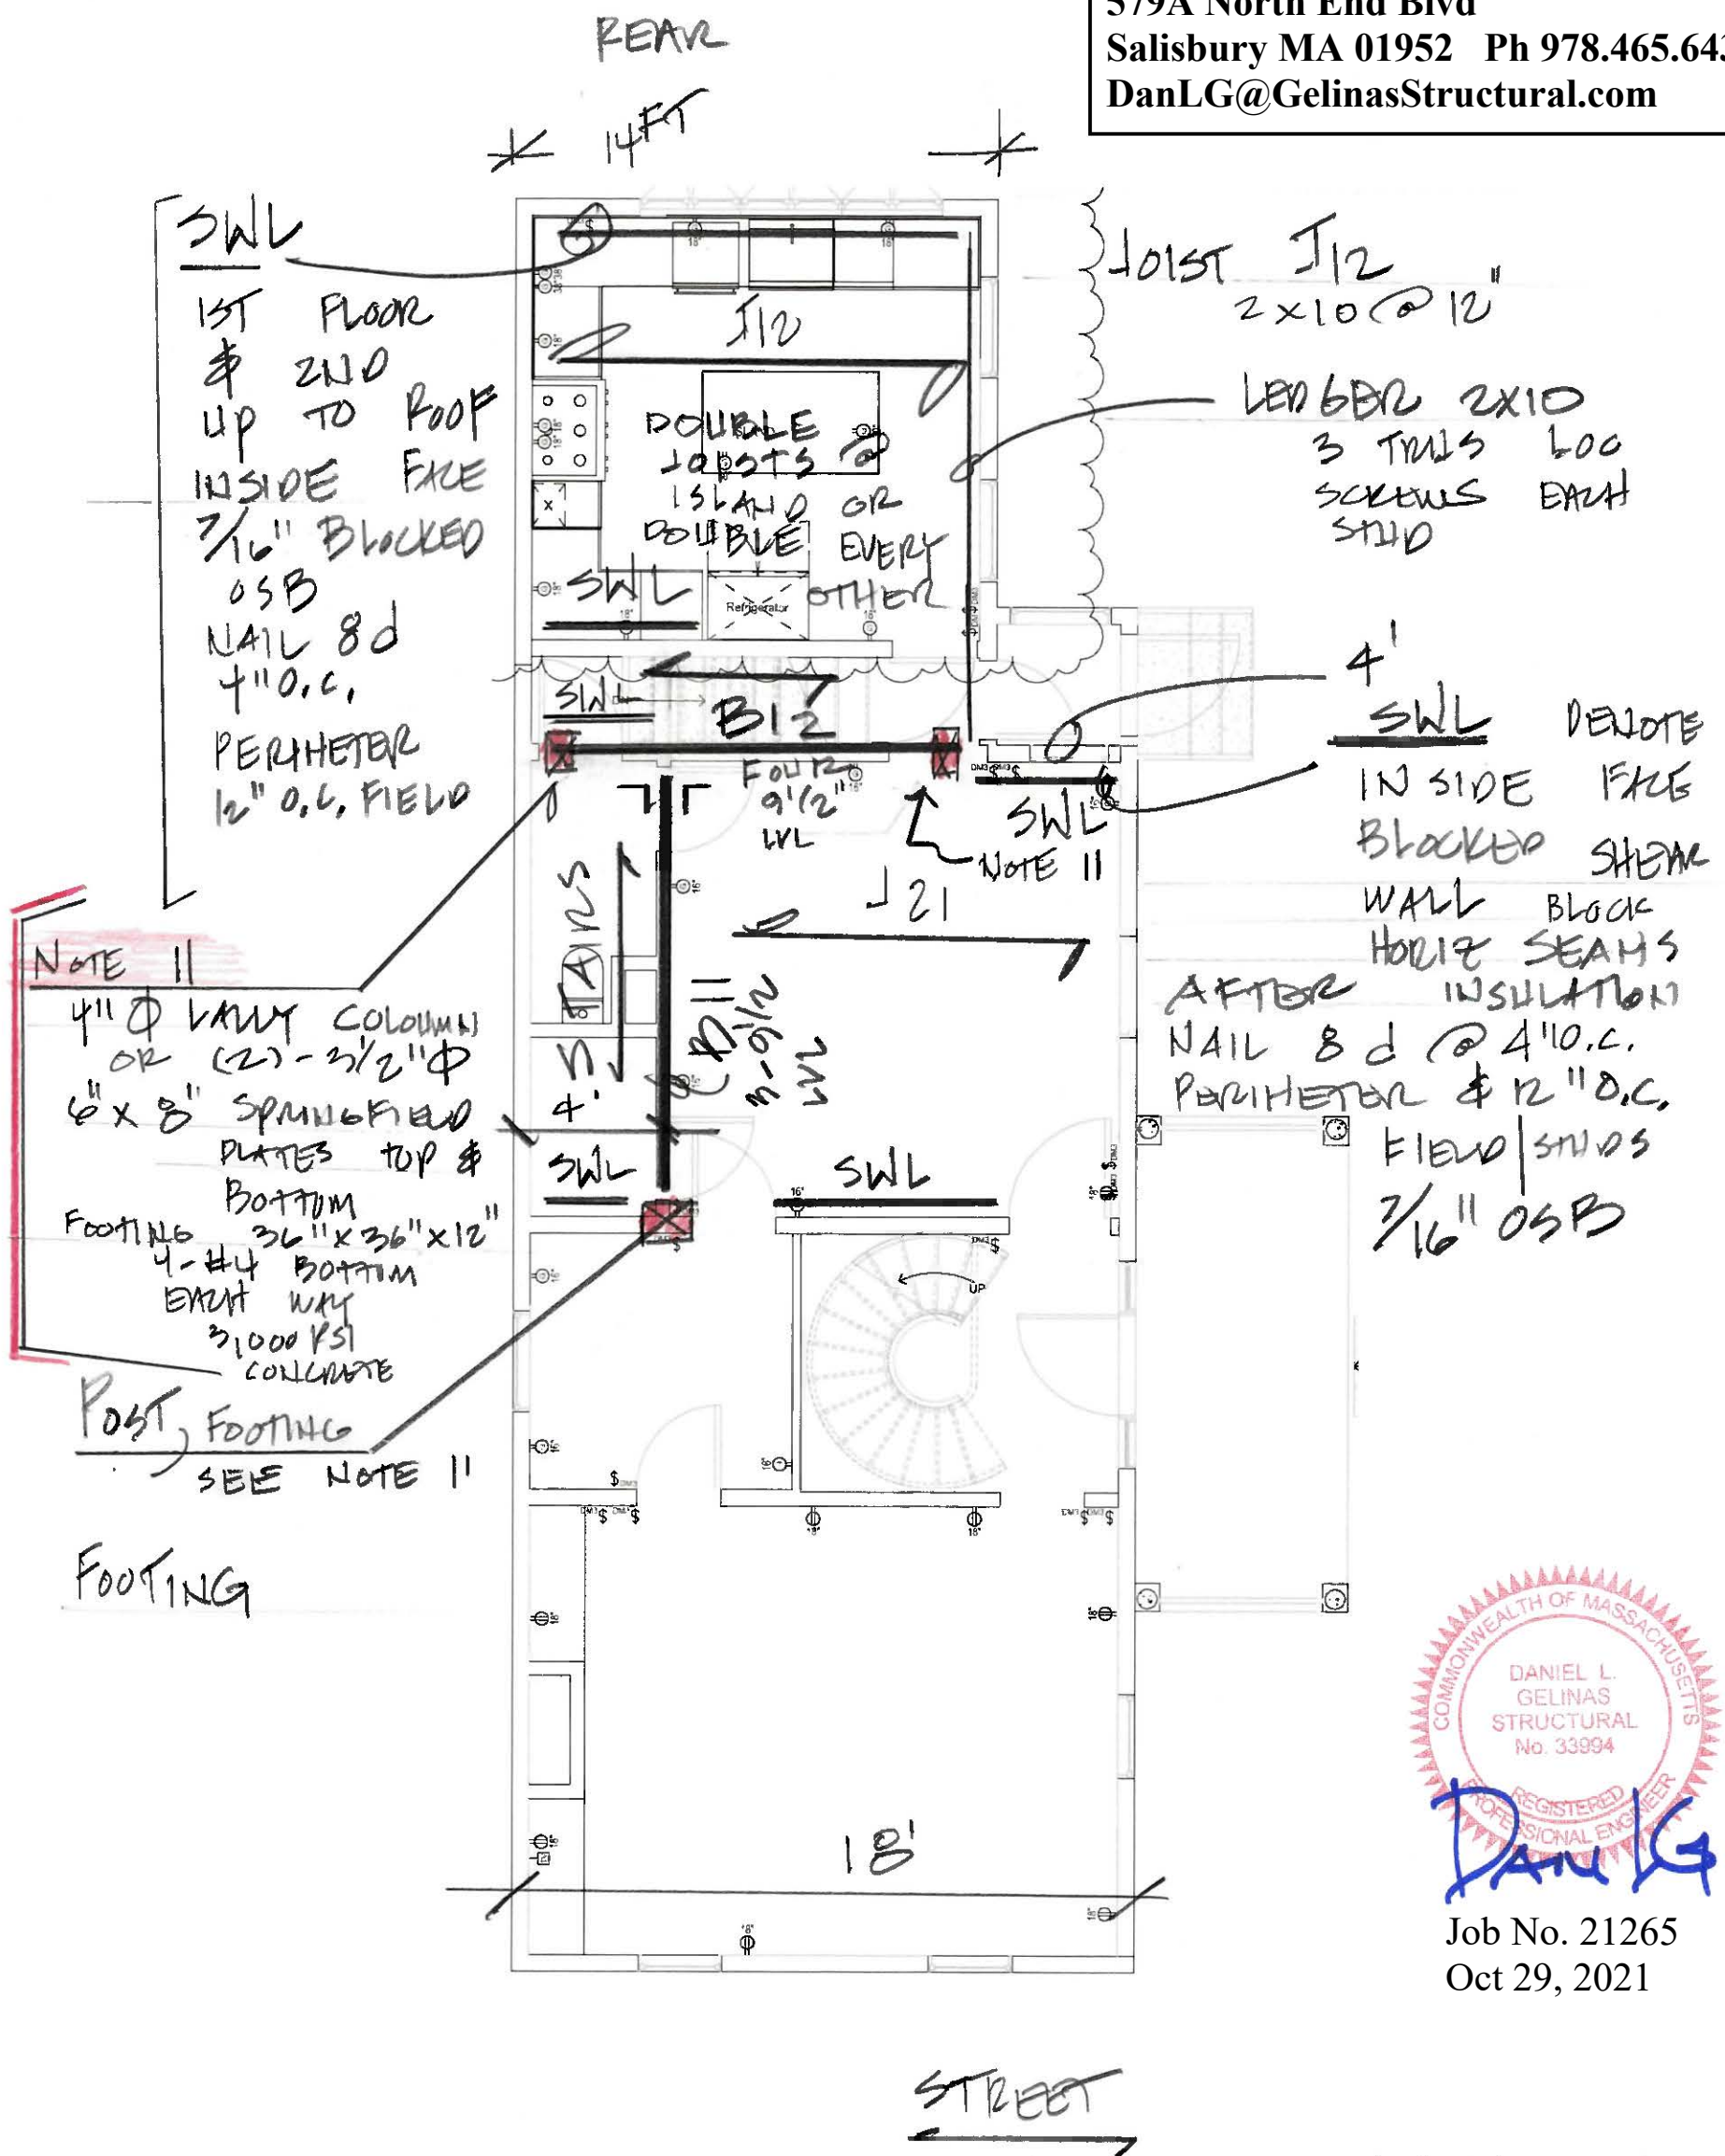 579A North End Blvd
Salisbury MA 01952 Ph 978.465.643
DanLG@GelinasStructural.com
REAR
14FT
SWL
1ST FLOOR
& 2ND
UP TO ROOF
INSIDE FACE
7/16" BLOCKED
OSB
NAIL 8d
4" O.C.
PERIMETER
12" O.C. FIELD
J12
DOUBLE
JOISTS @
ISLAND OR
DOUBLE EVERY
OTHER
SWL
Refrigerator
JOIST J12
2x10 @ 12"
LEDGER 2x10
3 TRUS LOC
SCREWS EACH
STUD
SWL
B12
FOUR
9 1/2"
LVL
SWL
NOTE 11
4'
SWL DENOTE
INSIDE FACE
BLOCKED SHEAR
WALL BLOCK
HORIZ SEAMS
AFTER INSULATION
NAIL 8d @ 4" O.C.
PERIMETER & 12" O.C.
FIELD STUDS
7/16" OSB
J21
STAIRS
B11
3-9 1/2
LVL
4'
SWL
SWL
NOTE 11
4" Φ LALLY COLOUMN
OR (2)-3 1/2" Φ
6" x 8" SPRINGFIELD
PLATES TOP &
BOTTOM
FOOTING 36" x 36" x 12"
4-#4 BOTTOM
EACH WAY
3,000 PSI
CONCRETE
POST, FOOTING
SEE NOTE 11
FOOTING
UP
18'
COMMONWEALTH OF MASSACHUSETTS
DANIEL L.
GELINAS
STRUCTURAL
No. 33994
REGISTERED
PROFESSIONAL ENGINEER
DAN LG
Job No. 21265
Oct 29, 2021
STREET